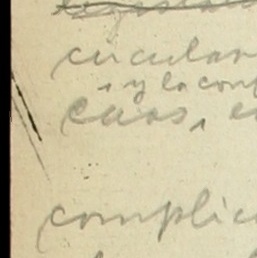 circular
y la conf
caos, e
complic